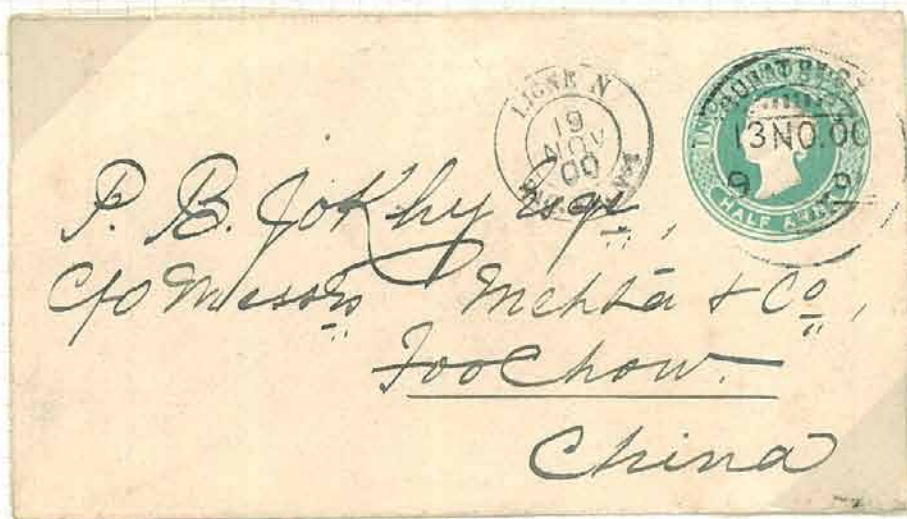 LIGNE N
19
NOV
00
13 NO. 00
9
HALF ANNA
P. B. Jokhy Esqr.,
C/O Messrs Mehta & Co.,
Foochow.
China